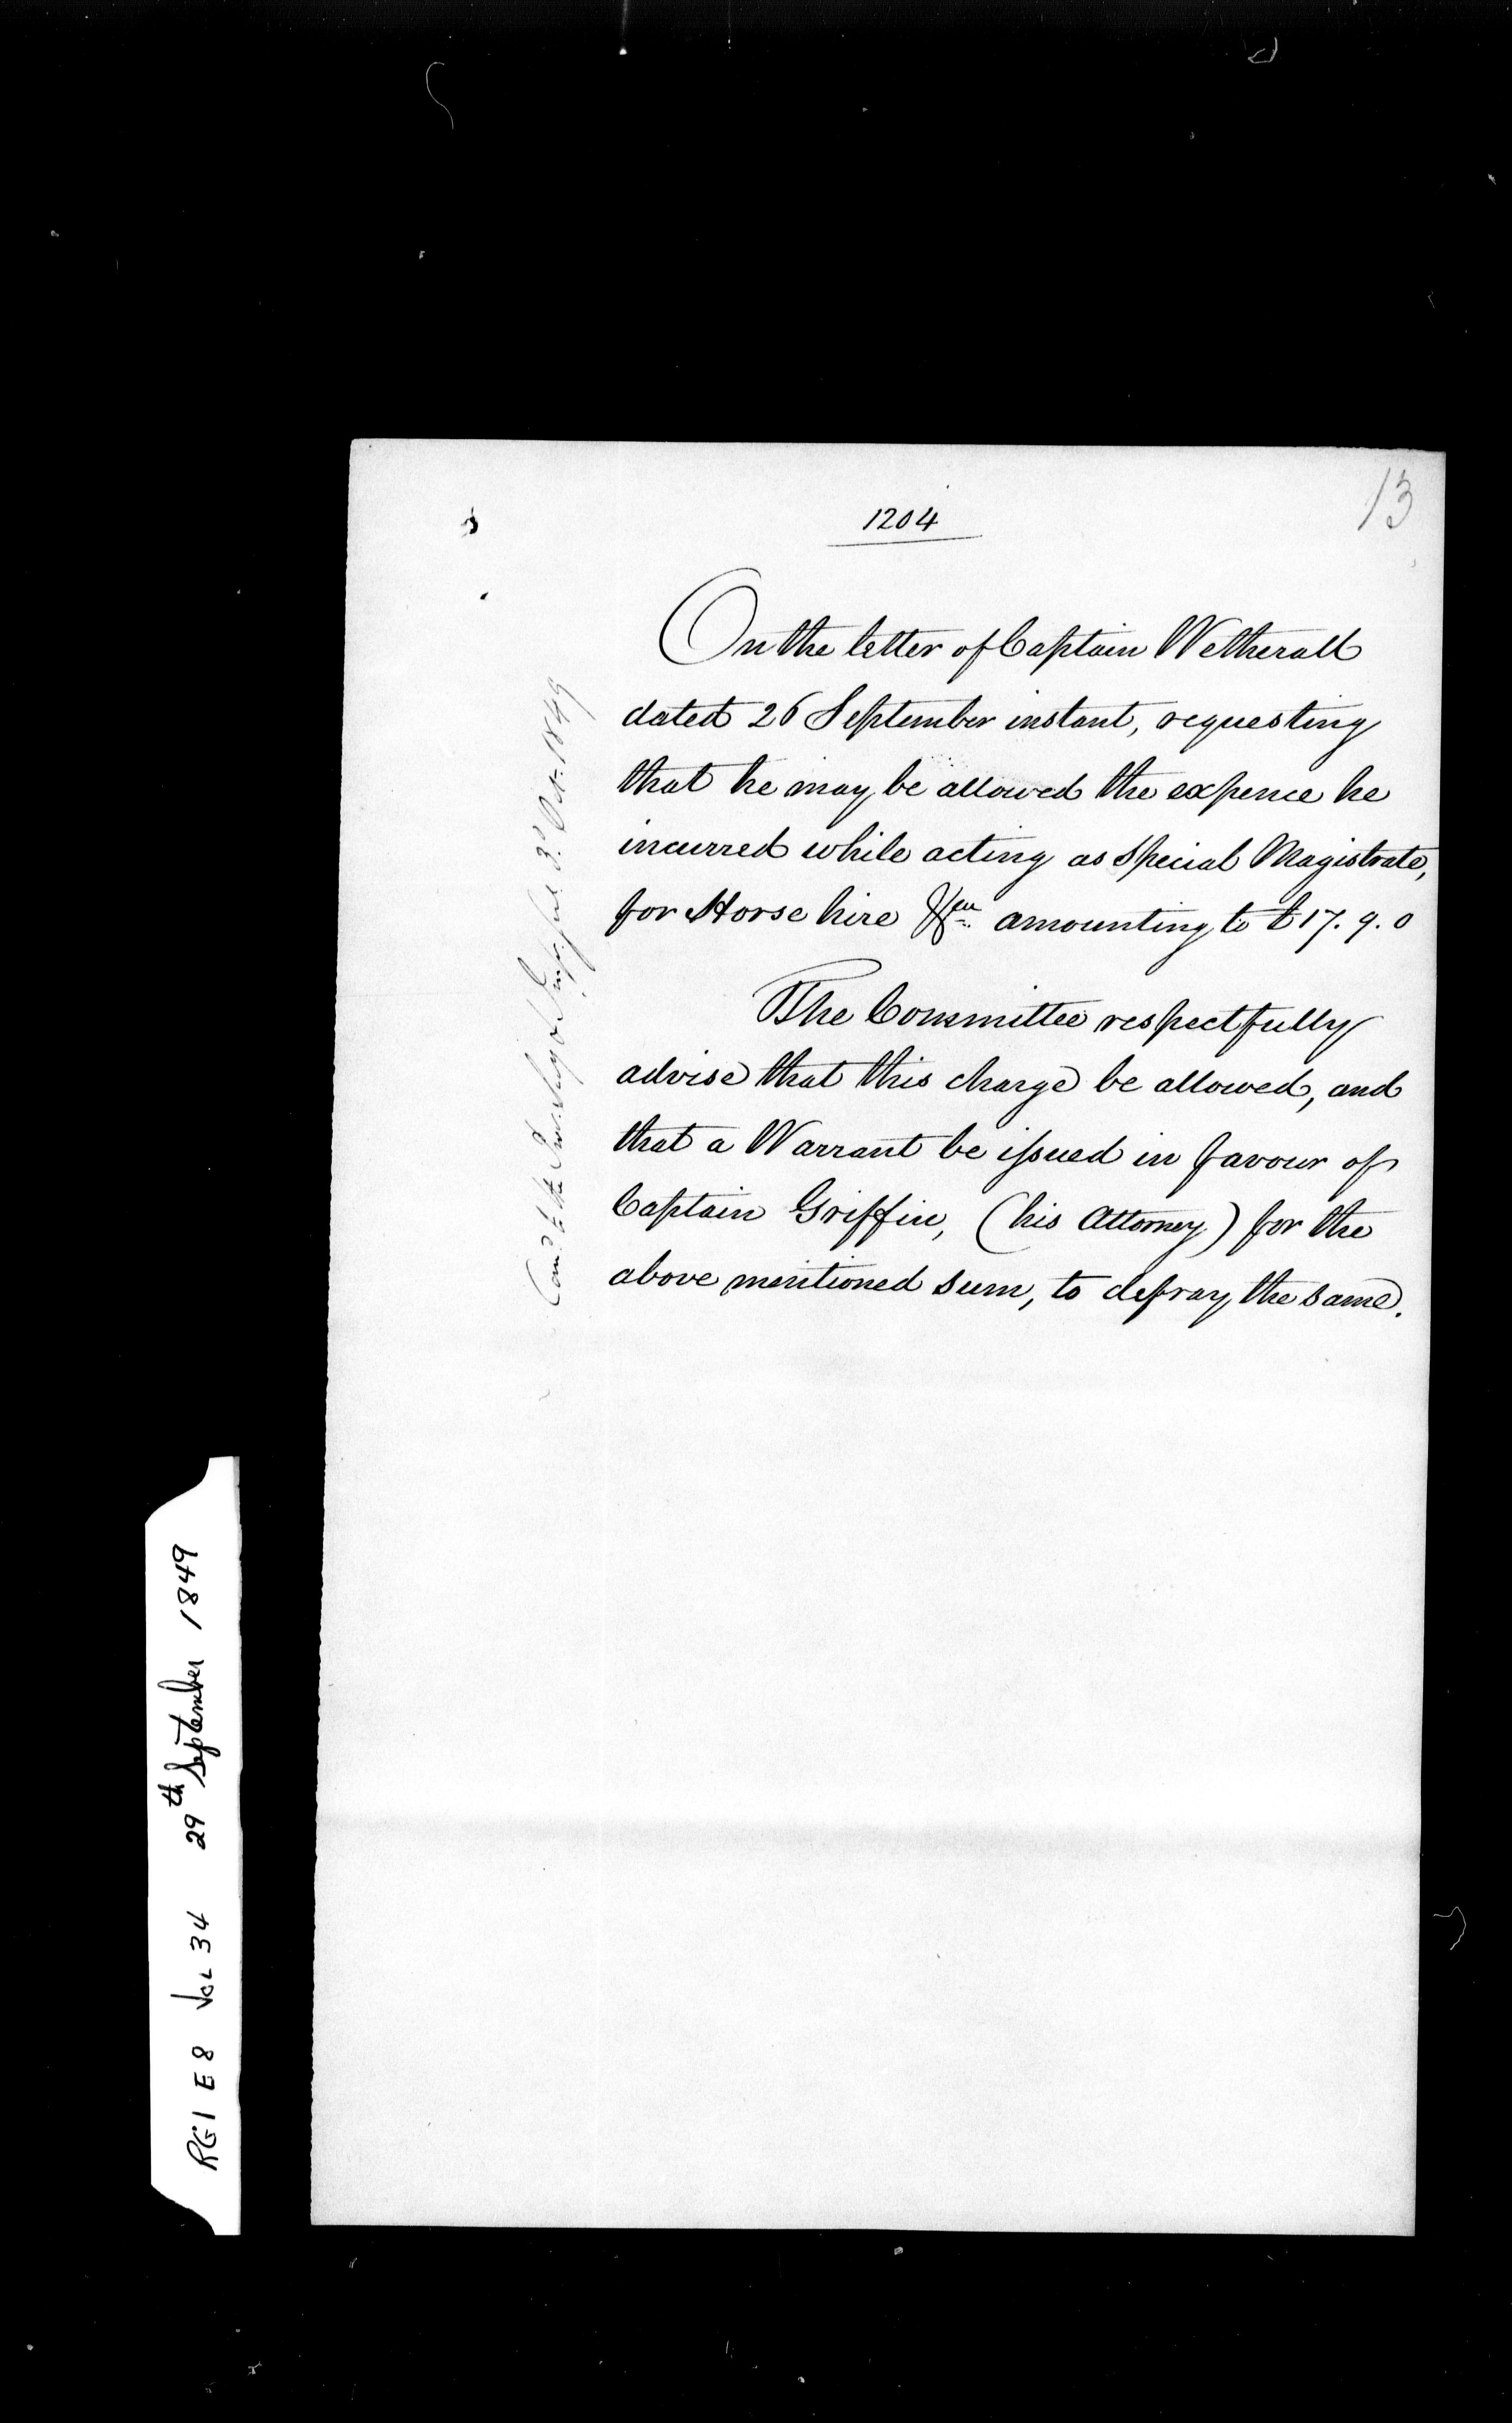 13
1204
On the letter of Captain Wetherall
dated 26 September instant, requesting
that he may be allowed the expence he
incurred while acting as Special Magistrate,
for Horse hire &ca amounting to £17. 9. 0
The Committee respectfully
advise that this charge be allowed, and
that a Warrant be issued in favour of
Captain Griffin, (his Attorney) for the
above mentioned sum, to defray the same.
3d Oct. 1849
RG1 E8 Vol 34 29th September 1849